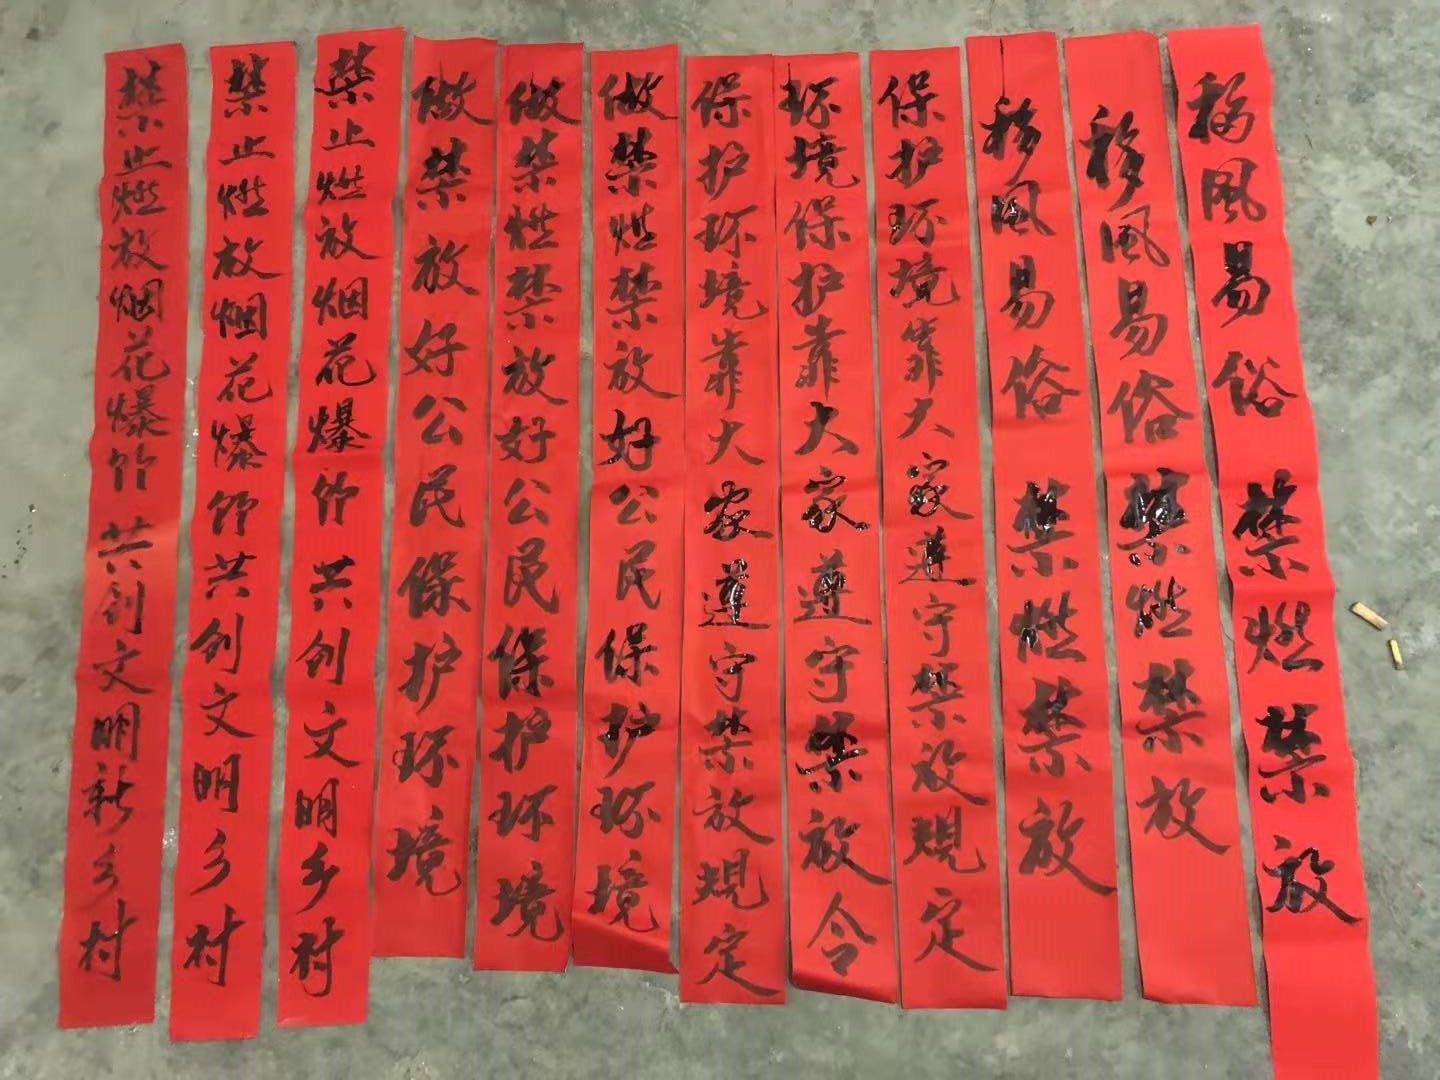 禁止燃放烟花爆竹 共创文明新乡村
禁止燃放烟花爆竹共创文明乡村
禁止燃放烟花爆竹 共创文明乡村
做禁放好公民保护环境
做禁燃禁放好公民保护环境
做禁燃禁放好公民保护环境
保护环境靠大家遵守禁放规定
环境保护靠大家遵守禁放令
保护环境靠大家遵守禁放规定
移风易俗 禁燃禁放
移风易俗禁燃禁放
移风易俗 禁燃禁放